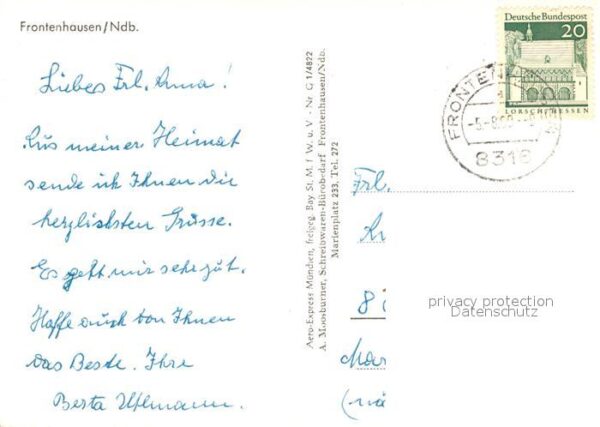 Frontenhausen/Ndb.
Liebes Frl. Anna!
Aus meiner Heimat
sende ich Ihnen die
herzlichsten Grüsse.
Es geht mir sehr gut.
Hoffe auch von Ihnen
das Beste. Ihre
Berta Uhlmann.
Aero-Express München, freigeg. Bay St. M. f W. u. V - Nr G 1/4822
A. Moosburner, Schreibwaren-Bürobedarf Frontenhausen/Ndb.
Marienplatz 233, Tel. 272
Deutsche Bundespost
20
LORSCH/HESSEN
8316
Frl.
8
privacy protection
Datenschutz
Mar